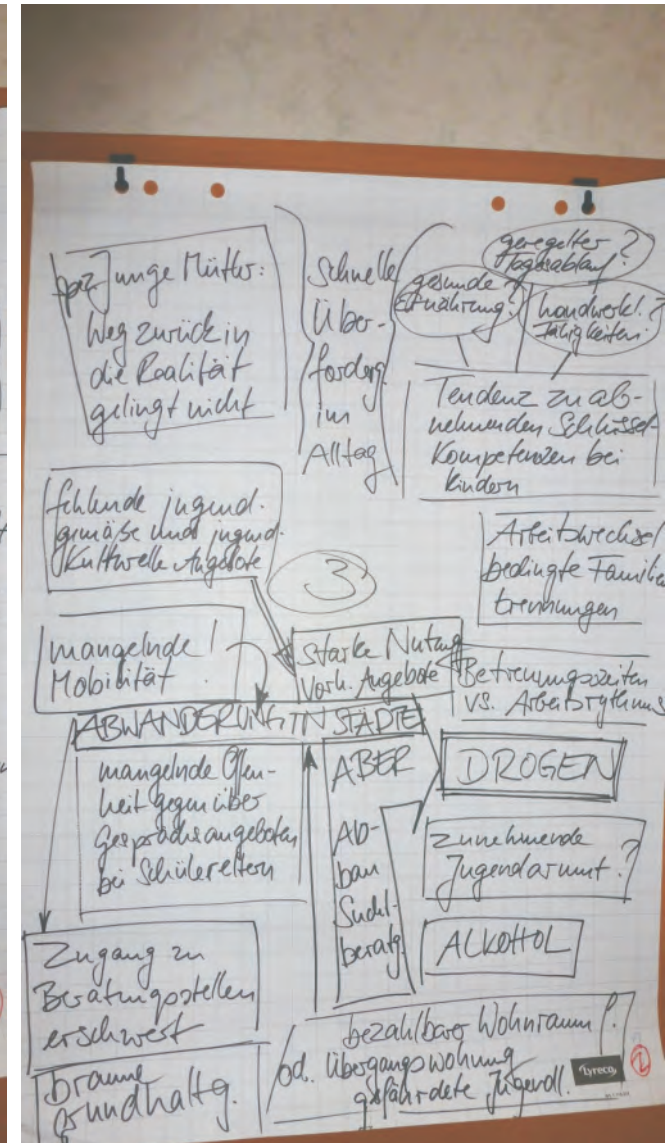 spez. Junge Mütter:
Weg zurück in
die Realität
gelingt nicht
Schnelle
Über-
forderg.
im
Alltag
geregelter ?
Tagesablauf
gesunde
Ernährung?
handwerkl. ?
Fähigkeiten
Tendenz zu ab-
nehmenden Schlüssel-
Kompetenzen bei
Kindern
fehlende jugend-
gemäße und jugend-
kulturelle Angebote
3
Arbeitswechsel
bedingte Familien
trennungen
mangelnde !
Mobilität
starke Nutzung
vorh. Angebote
Betreuungszeiten
vs. Arbeitsrythmus
ABWANDERUNG IN STÄDTE
mangelnde Offen-
heit gegenüber
Gesprächsangeboten
bei Schülereltern
ABER
Ab-
bau
Sucht-
beratg.
DROGEN
zunehmende
Jugendarmut ?
ALKOHOL
Zugang zu
Beratungsstellen
erschwert
braune
Grundhaltg.
bezahlbarer Wohnraum ?
od. Übergangswohnung
gefährdete Jugendl.
Lyreco
2